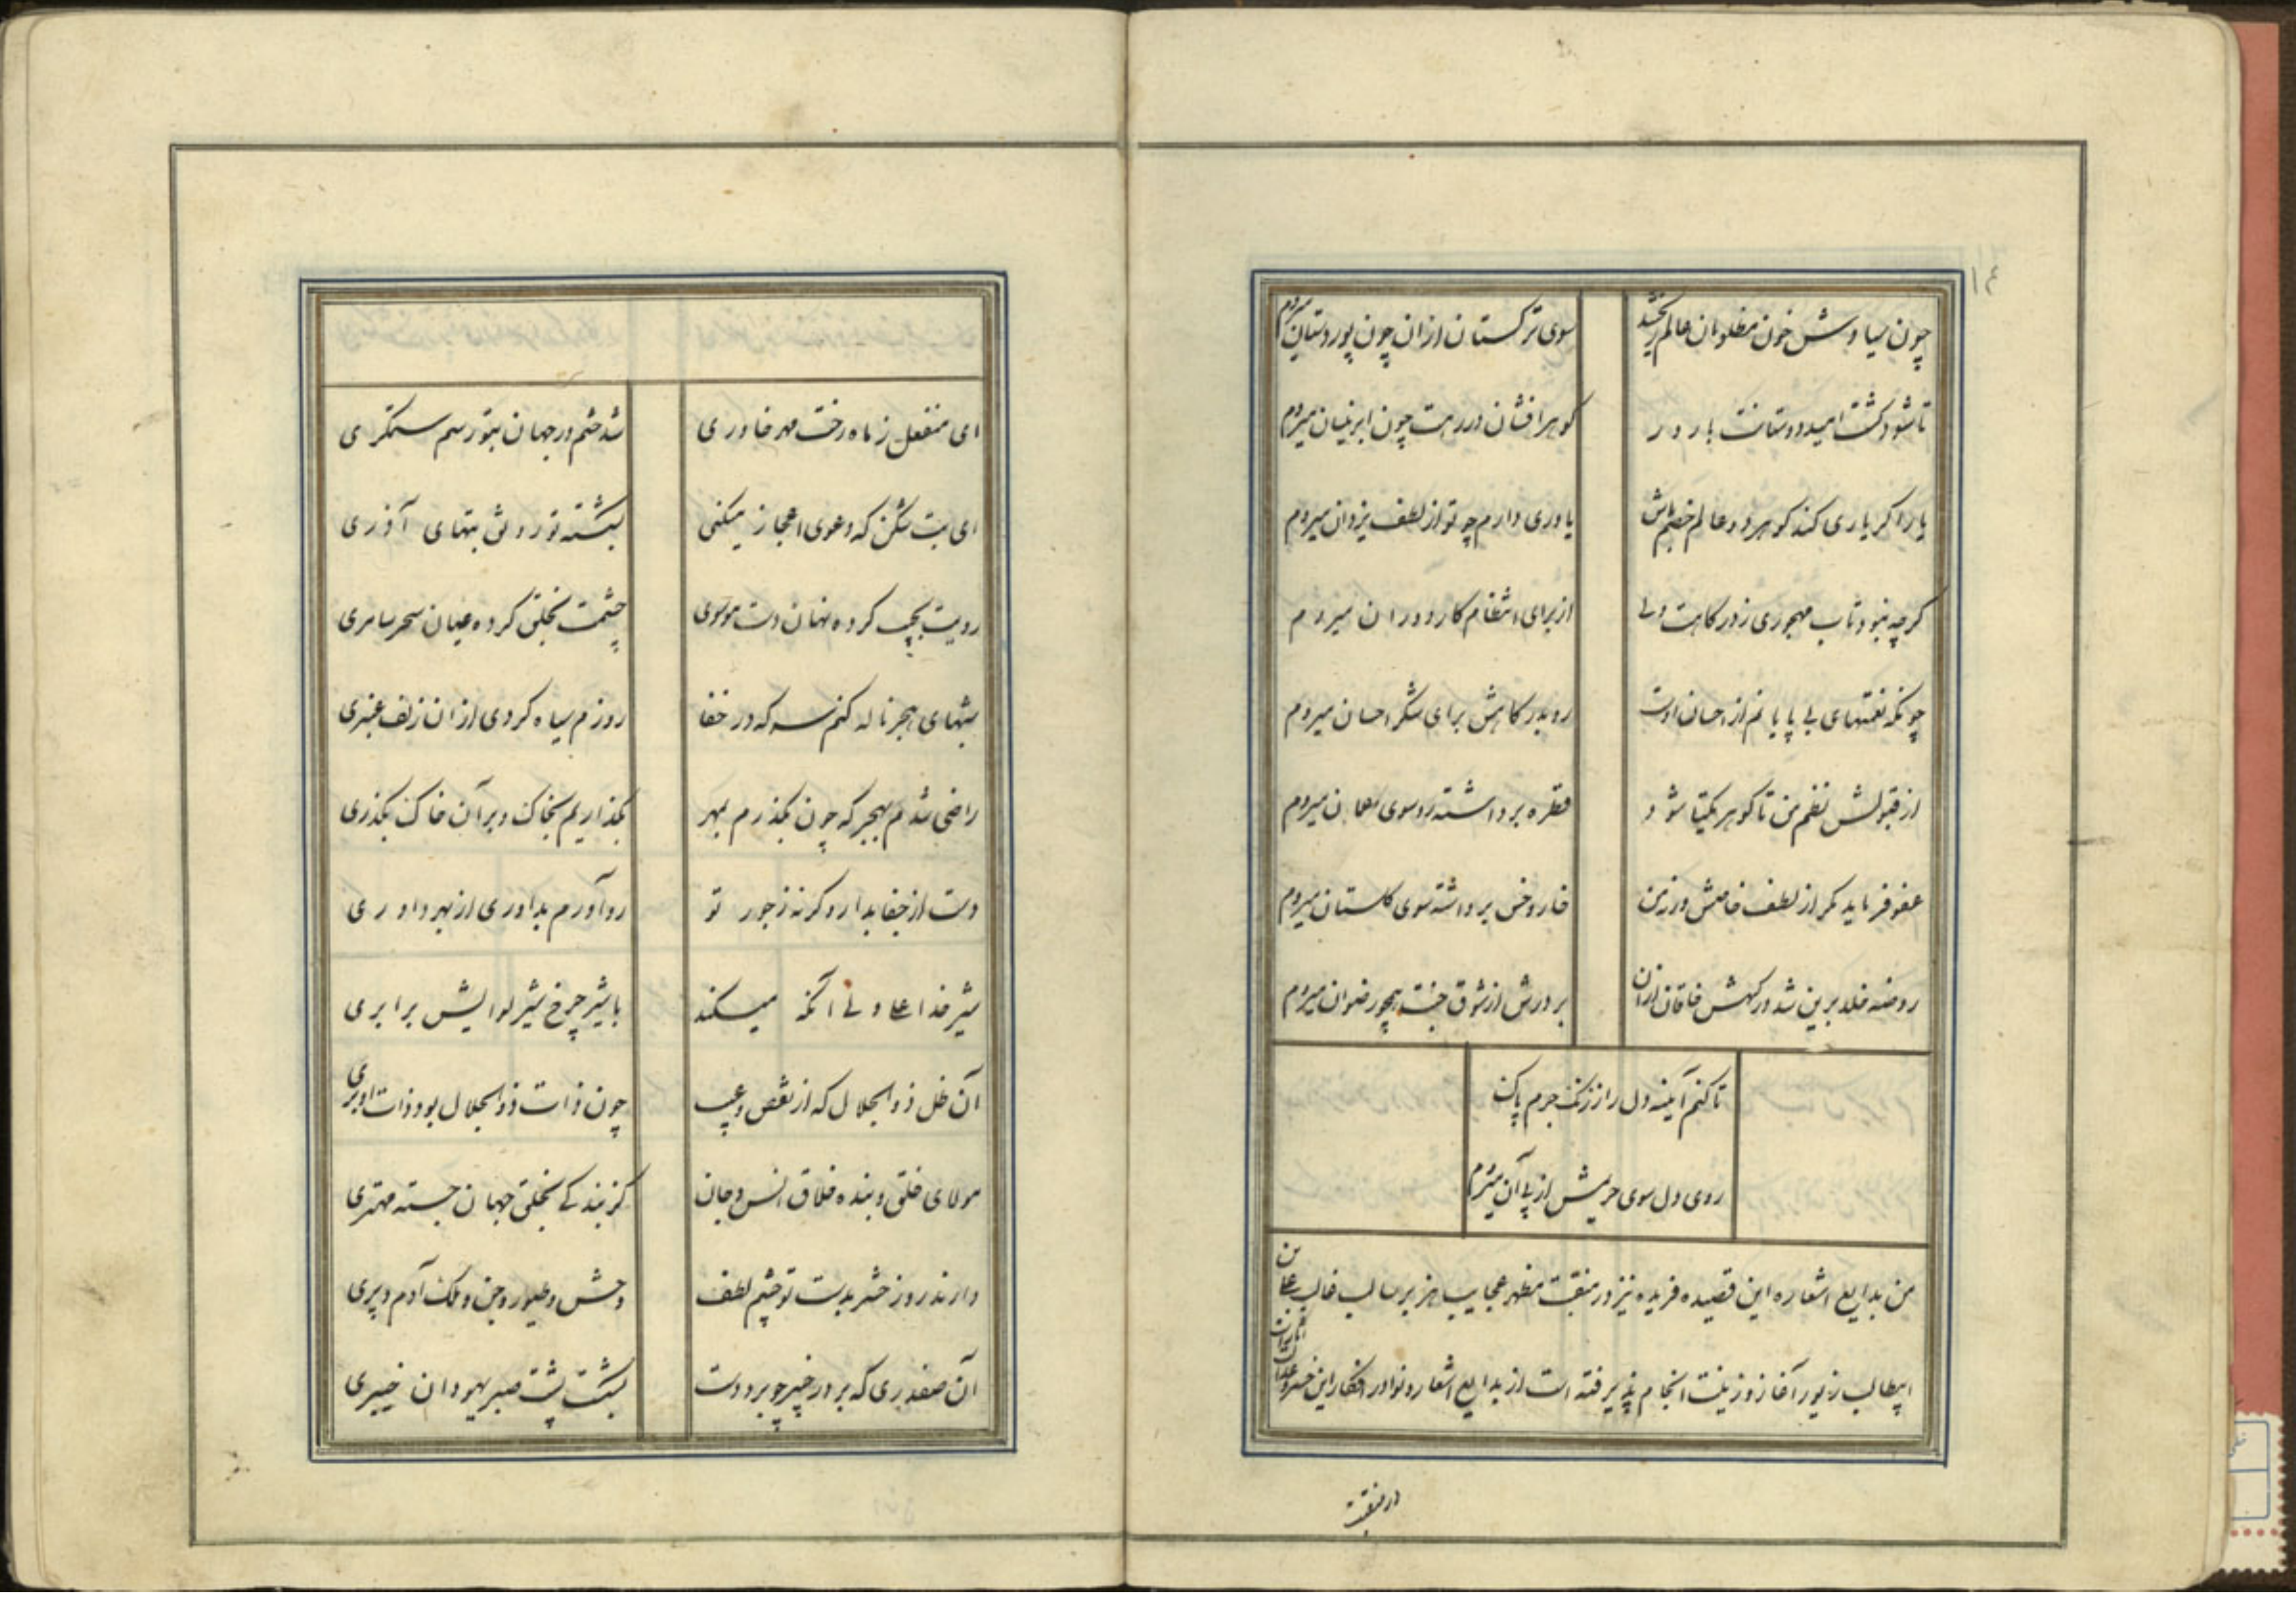 ۱۴
چون سیاوش خون مظلومان عالم ریختند سوی ترکستان ازان چون پور دستان میروم
تا شود کشت امید دوستانت بارور کوهر افشان در رهت چون ابر نیسان میروم
یار اکر یاری کند کو هر دو عالم خصم باش یاوری دارم چو تو از لطف یزدان میروم
کرچه نبود تاب مهجوری ز درکاهت ولی از برای انتظام کار دوران میروم
چونکه نعمتهای بی پایانم از احسان اوست رو بدرکاهش برای شکر احسان میروم
از قبولش نظم من تا کوهر یکتا شود قطره برداشته رو سوی عمان میروم
عفو فرماید مکر از لطف خاصش ورنه من خار و خس برداشته سوی کلستان میروم
روضه خلد برین شد درکهش خاقان ازان بر درش از شوق جنت همچو رضوان میروم
تا کنم آینه دل را ز زنک جرم پاک
روی دل سوی حریمش از پی آن میروم
من بدایع اشعاره این قصیده فریده نیز در منقبت مظهر عجایب هزبر سالب غالب علی بن
ابیطالب زیور آغاز و زینت انجام پذیرفته است از بدایع اشعار و نوادر افکار این خسرو
در منقبت
ای منفعل ز ماه رخت مهر خاوری شد ختم در جهان بتو رسم ستمکری
ای بت شکن که دعوی اعجاز میکنی بشکسته تو رونق بتهای آذری
رویت بجیب کرده نهان دست موسوی چشمت بخلق کرده عیان سحر سامری
شبهای هجر ناله کنم سر که در خفا روزم سیاه کردی ازان زلف عنبری
راضی شدم بهجر که چون بکذرم بمهر بکذاریم بخاک و بر آن خاک بکذری
دست از جفا بدار وکرنه ز جور تو رو آورم بداوری از بهر داوری
شیر خدا علی ولی آنکه میکند با شیر چرخ شیر لوایش برابری
آن ظل ذوالجلال که از نقص و عیب چون ذات ذوالجلال بود ذات او بری
مولای خلق و بنده خلاق انس و جان کز بندکی بخلق جهان جسته مهتری
دارند روز حشر بدست تو چشم لطف وحش و طیور و جن و ملک آدم و پری
آن صفدری که بر در خیبر چو برد دست بشکست پشت صبر یهودان خیبری